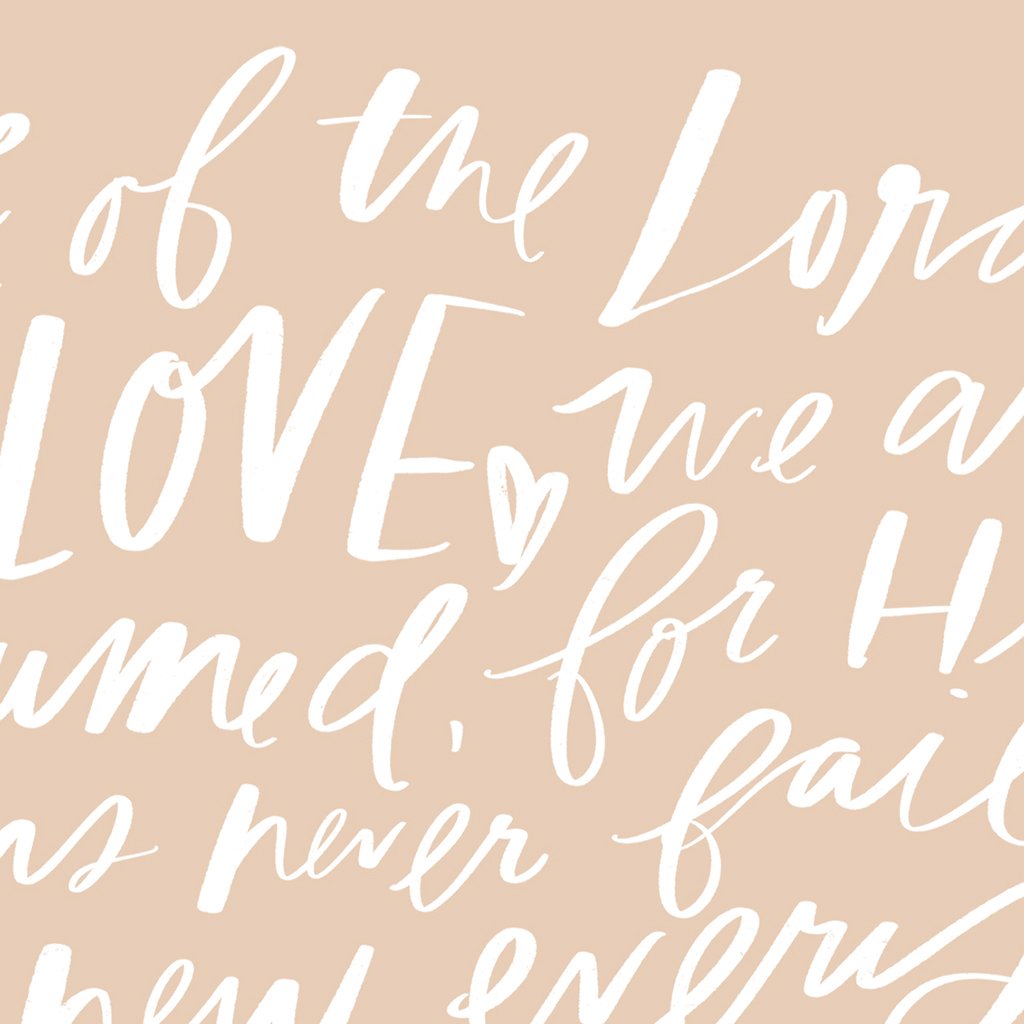 of the Lord
LOVE we a
umed, for Hi
ns never fail
new every